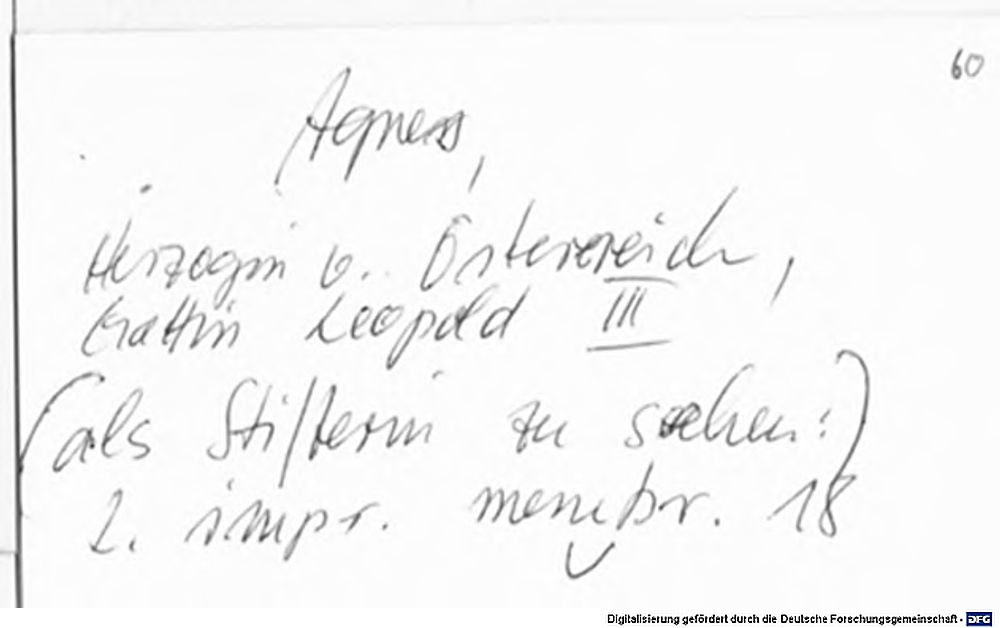 60
Agnes,
Herzogin v. Österreich,
Gattin Leopold III
(als Stifterin zu sehen:)
2. impr. membr. 18
Digitalisierung gefördert durch die Deutsche Forschungsgemeinschaft - DFG